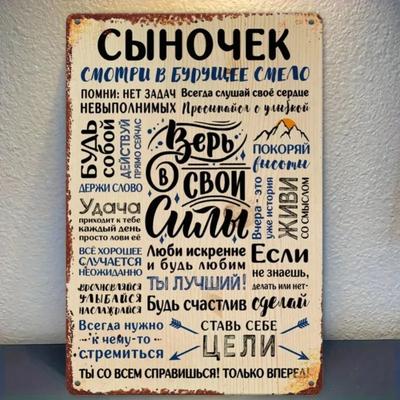 СЫНОЧЕК
СМОТРИ В БУДУЩЕЕ СМЕЛО
ПОМНИ: НЕТ ЗАДАЧ
НЕВЫПОЛНИМЫХ
Всегда слушай своё сердце
Просыпайся с улыбкой
БУДЬ
СОБОЙ
ДЕЙСТВУЙ
ПРЯМО СЕЙЧАС
ДЕРЖИ СЛОВО
Верь
в свои
Силы
ПОКОРЯЙ
высоты
Вчера - это
уже история
ЖИВИ
СО СМЫСЛОМ
Удача
приходит к тебе
каждый день
просто лови её
ВСЁ ХОРОШЕЕ
СЛУЧАЕТСЯ
НЕОЖИДАННО
ВДОХНОВЛЯЙСЯ
УЛЫБАЙСЯ
НАСЛАЖДАЙСЯ
Люби искренне
и будь любим
ТЫ ЛУЧШИЙ!
Будь счастлив
Если
не знаешь,
делать или нет-
сделай
Всегда нужно
к чему-то
стремиться
СТАВЬ СЕБЕ
ЦЕЛИ
ТЫ СО ВСЕМ СПРАВИШЬСЯ! ТОЛЬКО ВПЕРЕД!